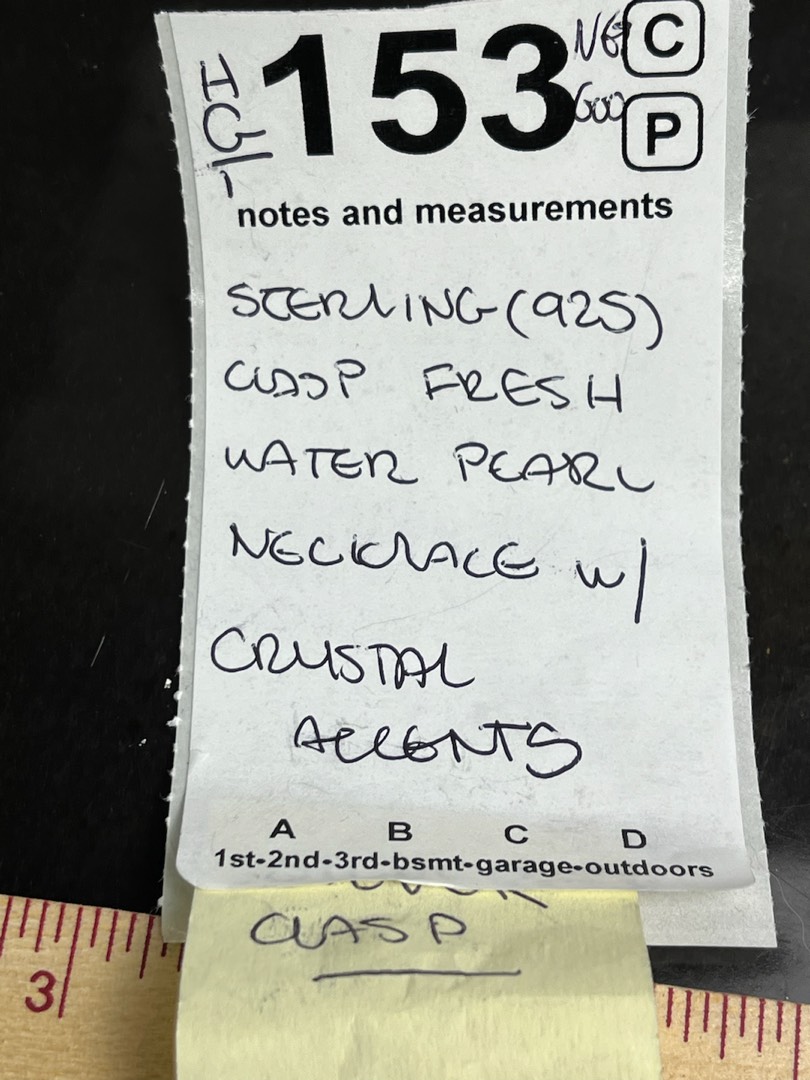 153
C
P
notes and measurements
STERLING (925)
CLASP FRESH
WATER PEARL
NECKLACE w/
CRYSTAL
ACCENTS
A B C D
1st-2nd-3rd-bsmt-garage-outdoors
CLASP
3